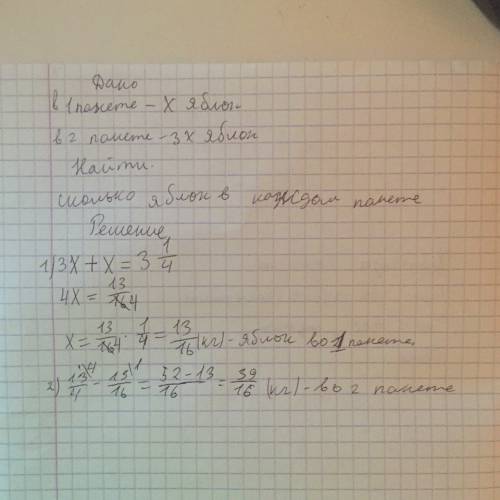 Дано
в 1 пакете – x яблок
в 2 пакете – 3x яблок
Найти.
сколько яблок в каждом пакете
Решение
1) 3x + x = 3 1/4
4x = 13/4
x = 13/4 · 1/4 = 13/16 (кг) – яблок во 1 пакете.
2) 13/4 – 13/16 = 52-13/16 = 39/16 (кг) – во 2 пакете